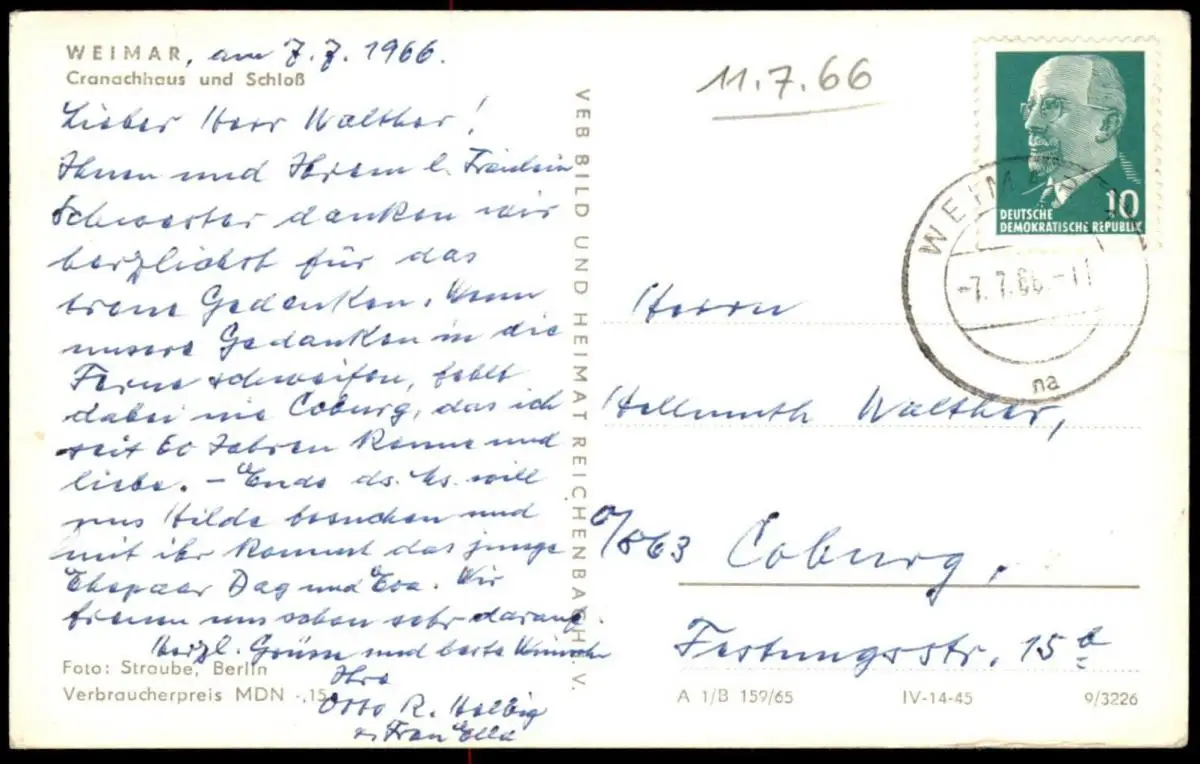 WEIMAR, am 7.7.1966.
Cranachhaus und Schloß
Lieber Herr Walther!
Ihnen und Ihrem l. Fräulein
Schwester danken wir
herzlichst für das
treue Gedenken. Wenn
unsere Gedanken in die
Ferne schweifen, fehlt
dabei nie Coburg, das ich
seit 60 Jahren kenne und
liebe. – Ende ds. Js. will
uns Hilde besuchen und
mit ihr kommt das junge
Ehepaar Dag und Eva. Wir
freuen uns schon sehr darauf.
Herzl. Grüsse und beste Wünsche
Ihre
Otto R. Helbig
u. Frau Ella
Foto: Straube, Berlin
Verbraucherpreis MDN -,15
VEB BILD UND HEIMAT REICHENBACH I. V.
11.7.66
10
DEUTSCHE
DEMOKRATISCHE REPUBLIK
WEIMAR
-7.7.66.-11
na
Herrn
Hellmuth Walther,
863 Coburg,
Festungsstr. 15a
A 1/B 159/65 IV-14-45 9/3226